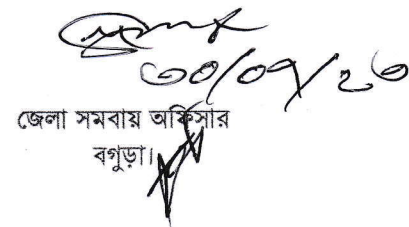 ৩০/০৭/২৩
জেলা সমবায় অফিসার
বগুড়া।